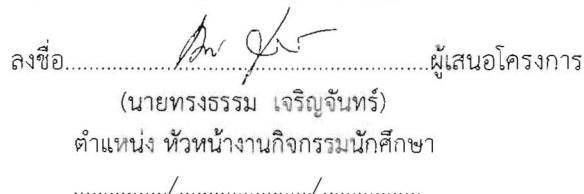 ลงชื่อ......................................................ผู้เสนอโครงการ
(นายทรงธรรม เจริญจันทร์)
ตำแหน่ง หัวหน้างานกิจกรรมนักศึกษา
................/......................./................